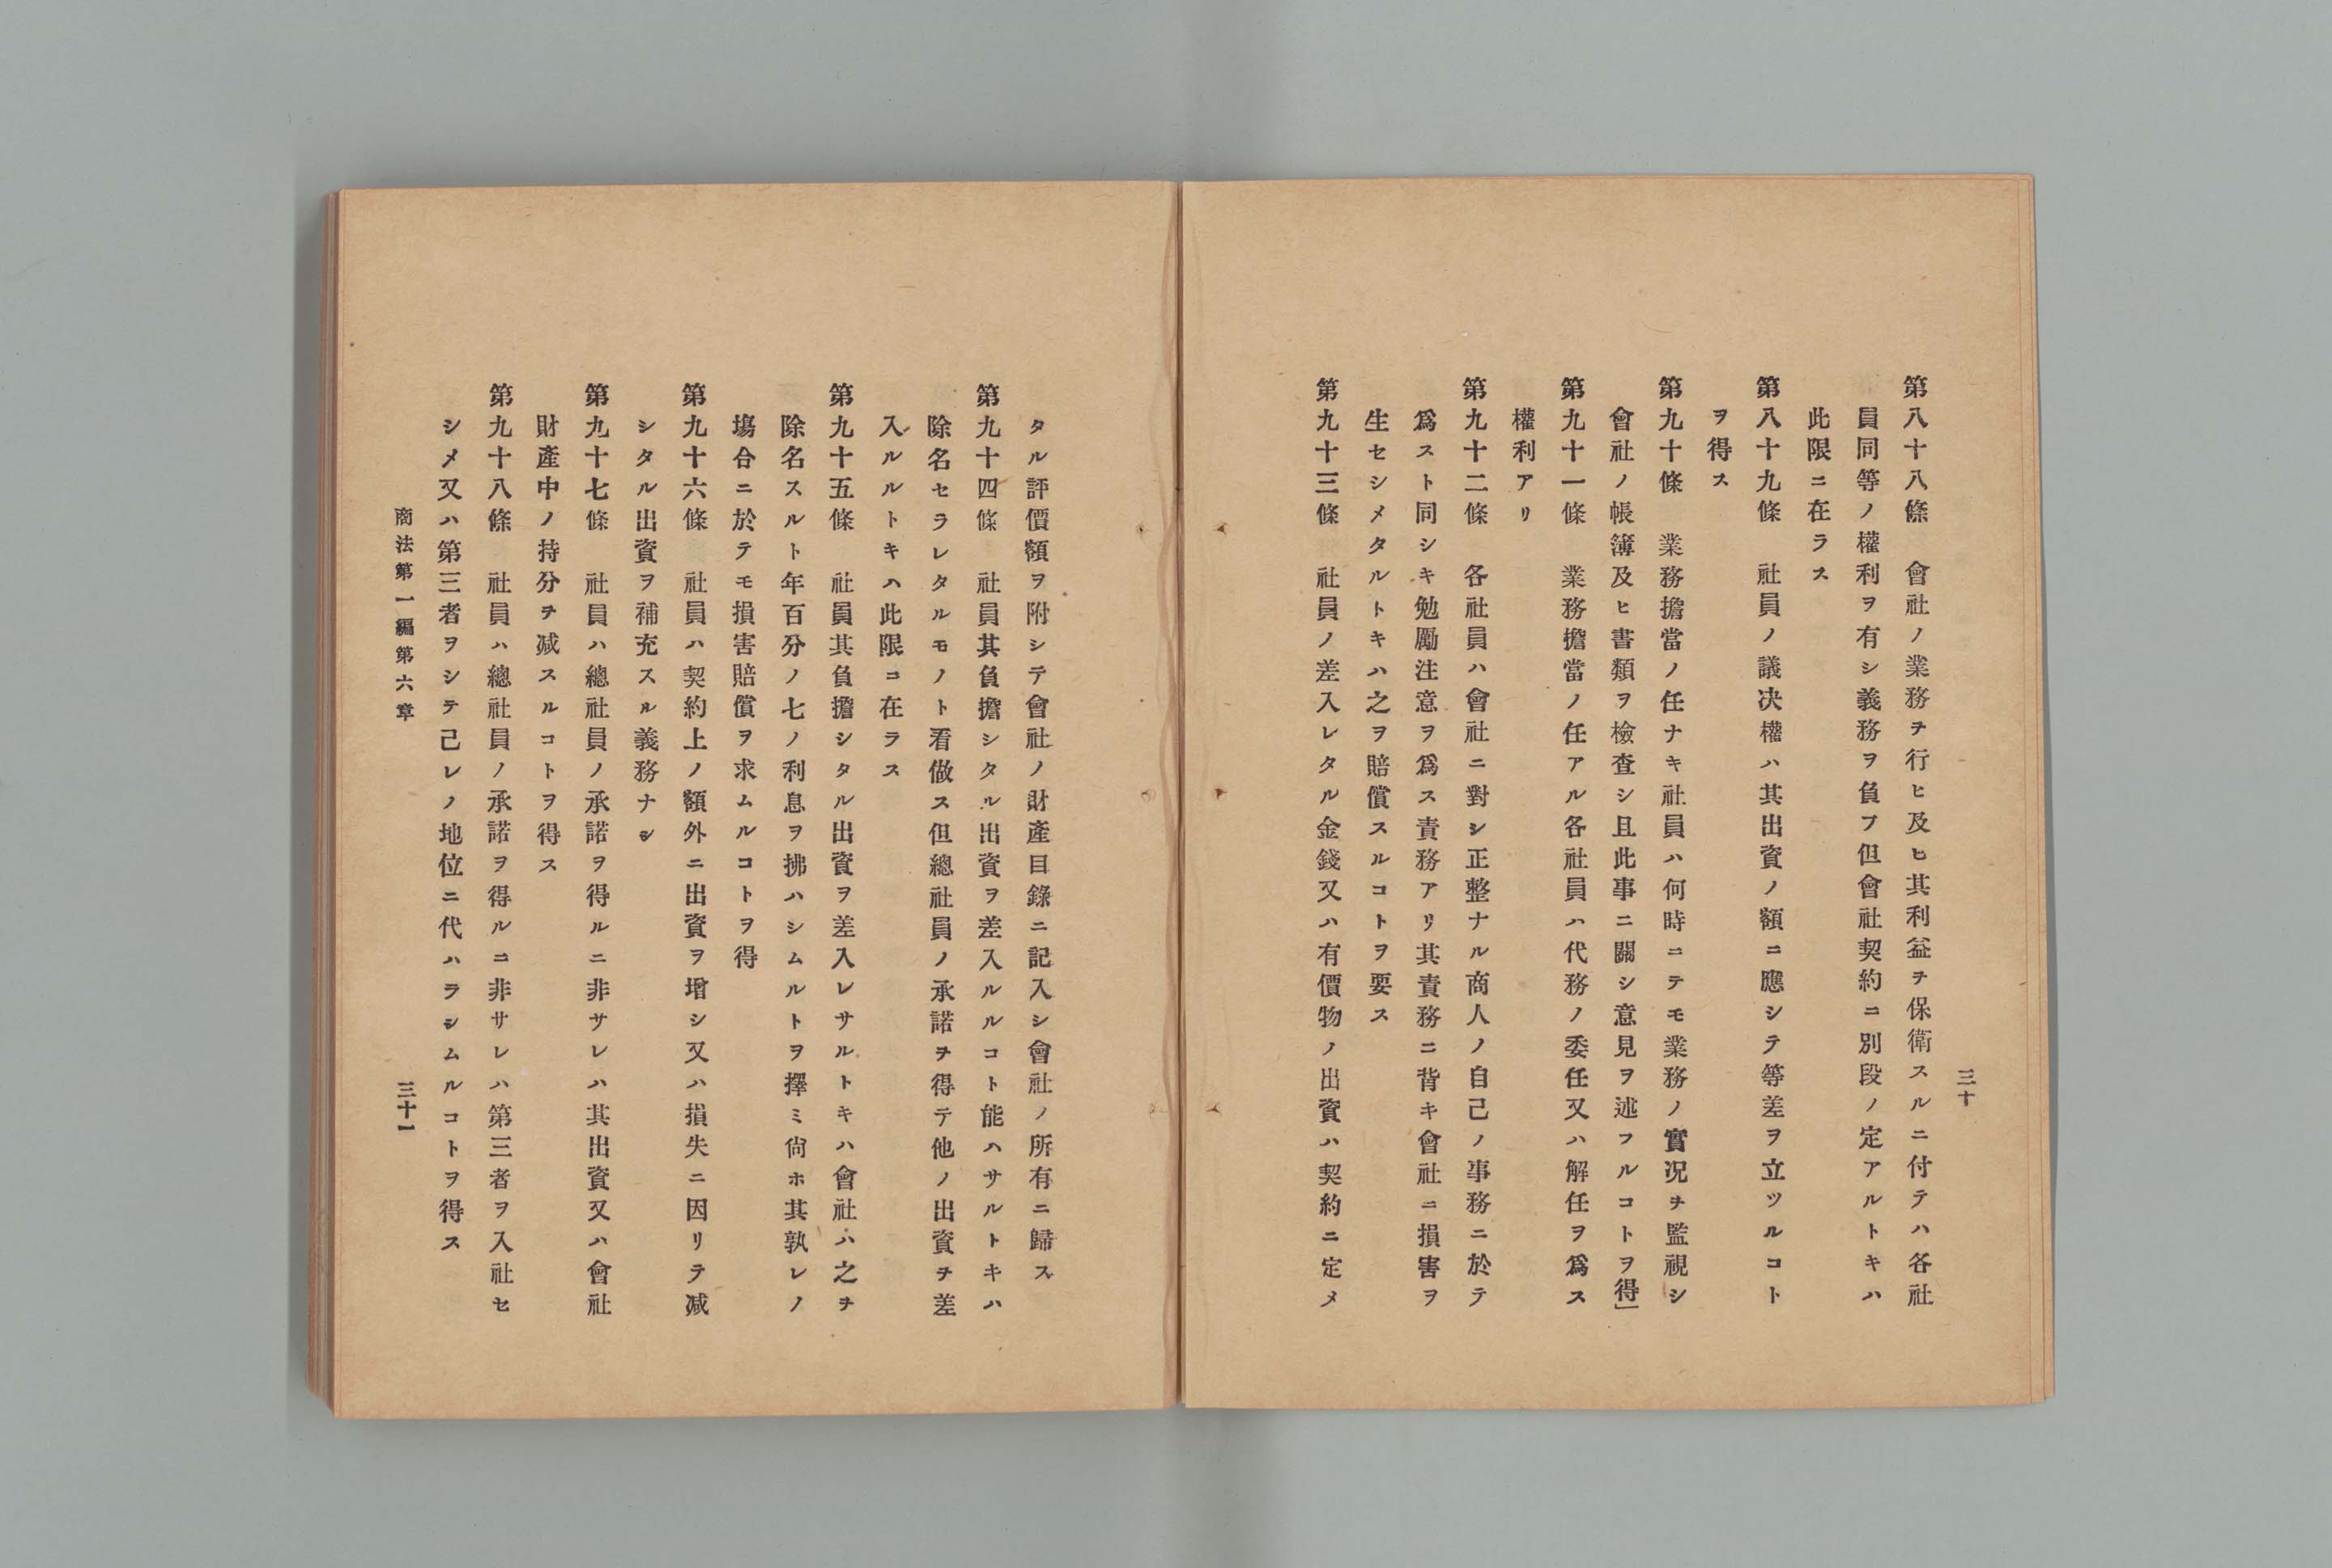 三十
第八十八條　會社ノ業務ヲ行ヒ及ヒ其利益ヲ保衛スルニ付テハ各社
員同等ノ權利ヲ有シ義務ヲ負フ但會社契約ニ別段ノ定アルトキハ
此限ニ在ラス
第八十九條　社員ノ議决權ハ其出資ノ額ニ應シテ等差ヲ立ツルコト
ヲ得ス
第九十條　業務擔當ノ任ナキ社員ハ何時ニテモ業務ノ實況ヲ監視シ
會社ノ帳簿及ヒ書類ヲ檢査シ且此事ニ關シ意見ヲ述フルコトヲ得」
第九十一條　業務擔當ノ任アル各社員ハ代務ノ委任又ハ解任ヲ爲ス
權利アリ
第九十二條　各社員ハ會社ニ對シ正整ナル商人ノ自己ノ事務ニ於テ
爲スト同シキ勉勵注意ヲ爲ス責務アリ其責務ニ背キ會社ニ損害ヲ
生セシメタルトキハ之ヲ賠償スルコトヲ要ス
第九十三條　社員ノ差入レタル金錢又ハ有價物ノ出資ハ契約ニ定メ
タル評價額ヲ附シテ會社ノ財產目錄ニ記入シ會社ノ所有ニ歸ス
第九十四條　社員其負擔シタル出資ヲ差入ルルコト能ハサルトキハ
除名セラレタルモノト看做ス但總社員ノ承諾ヲ得テ他ノ出資ヲ差
入ルルトキハ此限コ在ラス
第九十五條　社員其負擔シタル出資ヲ差入レサルトキハ會社ハ之ヲ
除名スルト年百分ノ七ノ利息ヲ拂ハシムルトヲ擇ミ尙ホ其孰レノ
塲合ニ於テモ損害賠償ヲ求ムルコトヲ得
第九十六條　社員ハ契約上ノ額外ニ出資ヲ增シ又ハ損失ニ因リテ减
シタル出資ヲ補充スル義務ナシ
第九十七條　社員ハ總社員ノ承諾ヲ得ルニ非サレハ其出資又ハ會社
財產中ノ持分ヲ减スルコトヲ得ス
第九十八條　社員ハ總社員ノ承諾ヲ得ルニ非サレハ第三者ヲ入社セ
シメ又ハ第三者ヲシテ己レノ地位ニ代ハラシムルコトヲ得ス
商法第一編第六章
三十一